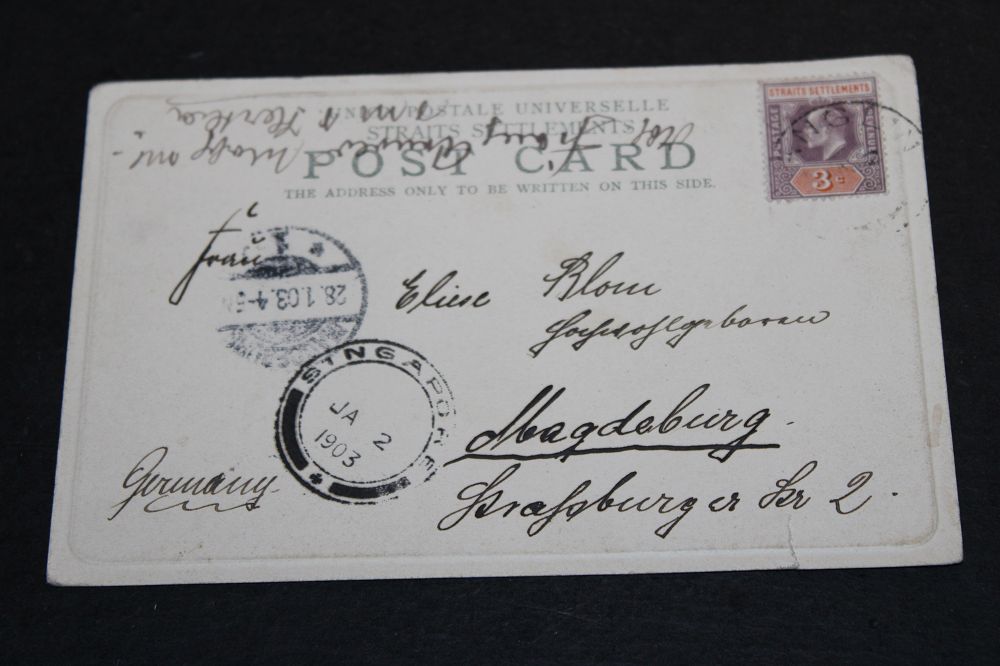 UNION POSTALE UNIVERSELLE
STRAITS SETTLEMENTS
POST CARD
THE ADDRESS ONLY TO BE WRITTEN ON THIS SIDE.
STRAITS SETTLEMENTS
POSTAGE & REVENUE
3c
Frau
Eliese Blom
Hochwohlgeboren
Magdeburg.
Strassburger Str 2.
Germany
28.1.03.4-5N
SINGAPORE
JA 2
1903